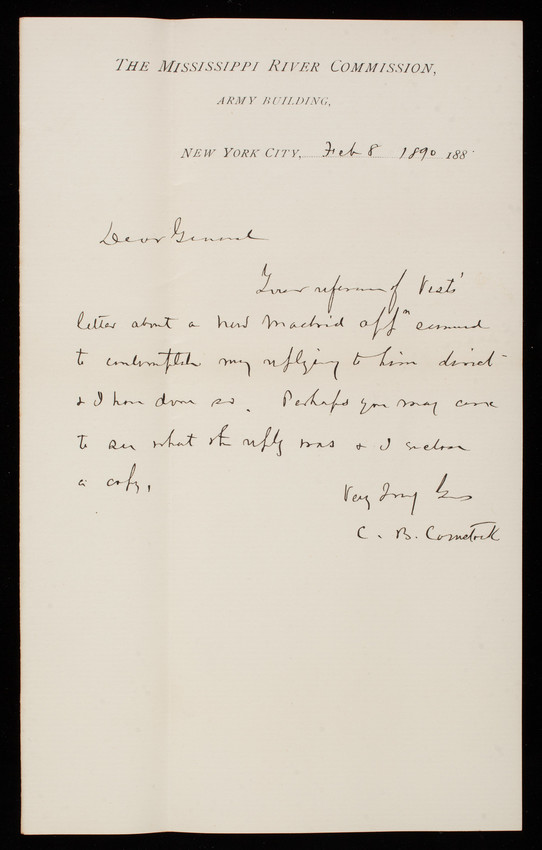 THE MISSISSIPPI RIVER COMMISSION,
ARMY BUILDING,
NEW YORK CITY, Feb 8 1890 188
Dear General
Your reference of Vests'
letter about a New Madrid aff<sup>n</sup> seemed
to contemplate my replying to him direct
& I have done so. Perhaps you may care
to see what the reply was & I enclose
a copy.
Very Truly Yrs
C. B. Comstock